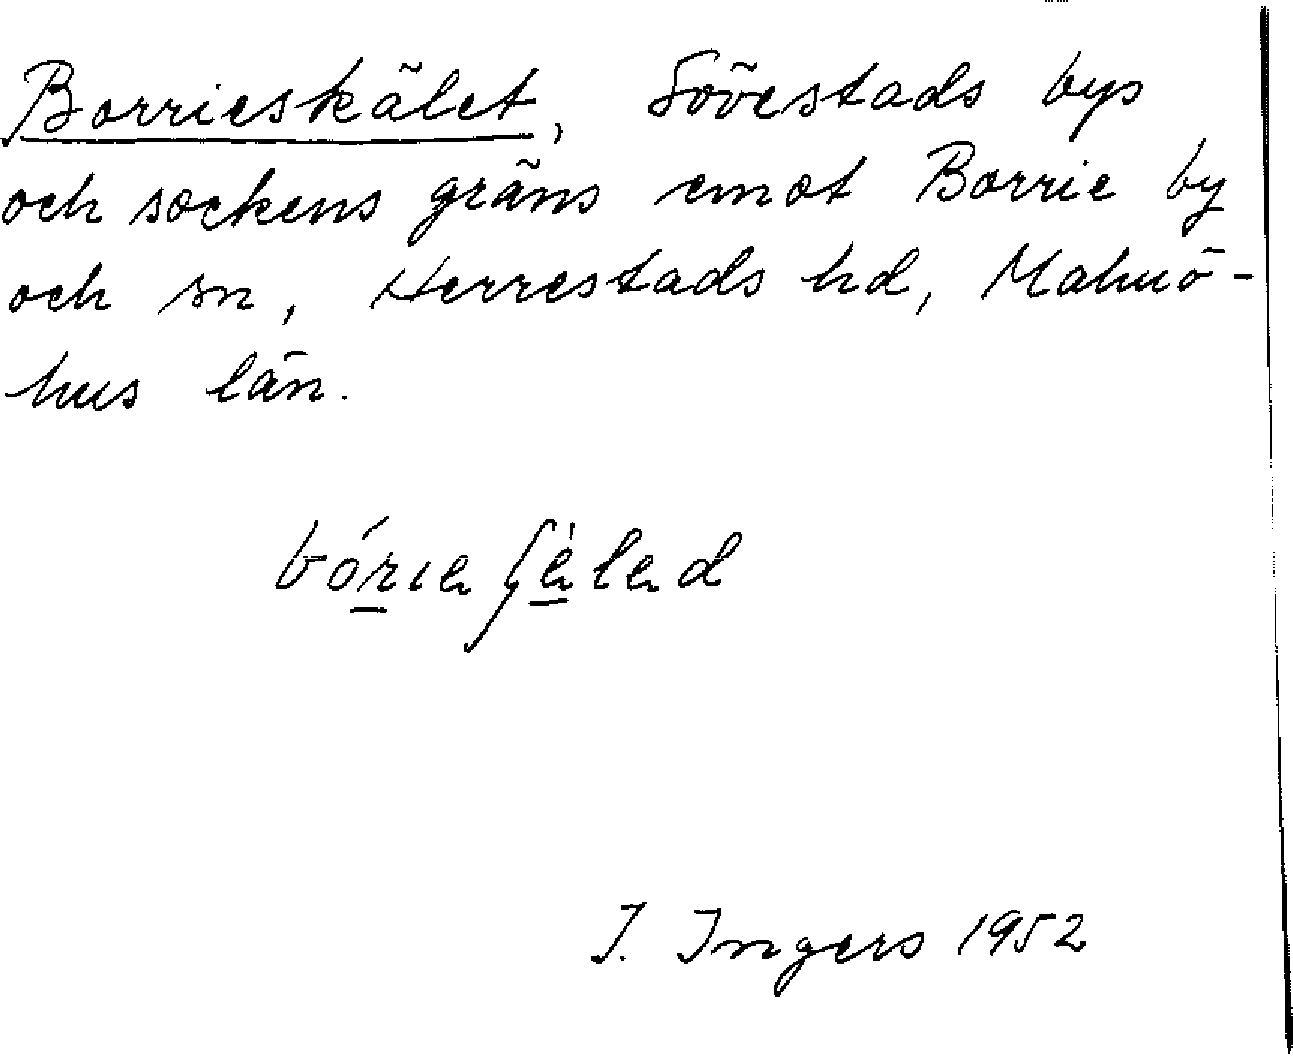 Borrieskälet, Sövestads bys
och sockens gräns emot Borrie by
och sn, Herrestads hd, Malmö-
hus län.
I. Ingers 1952